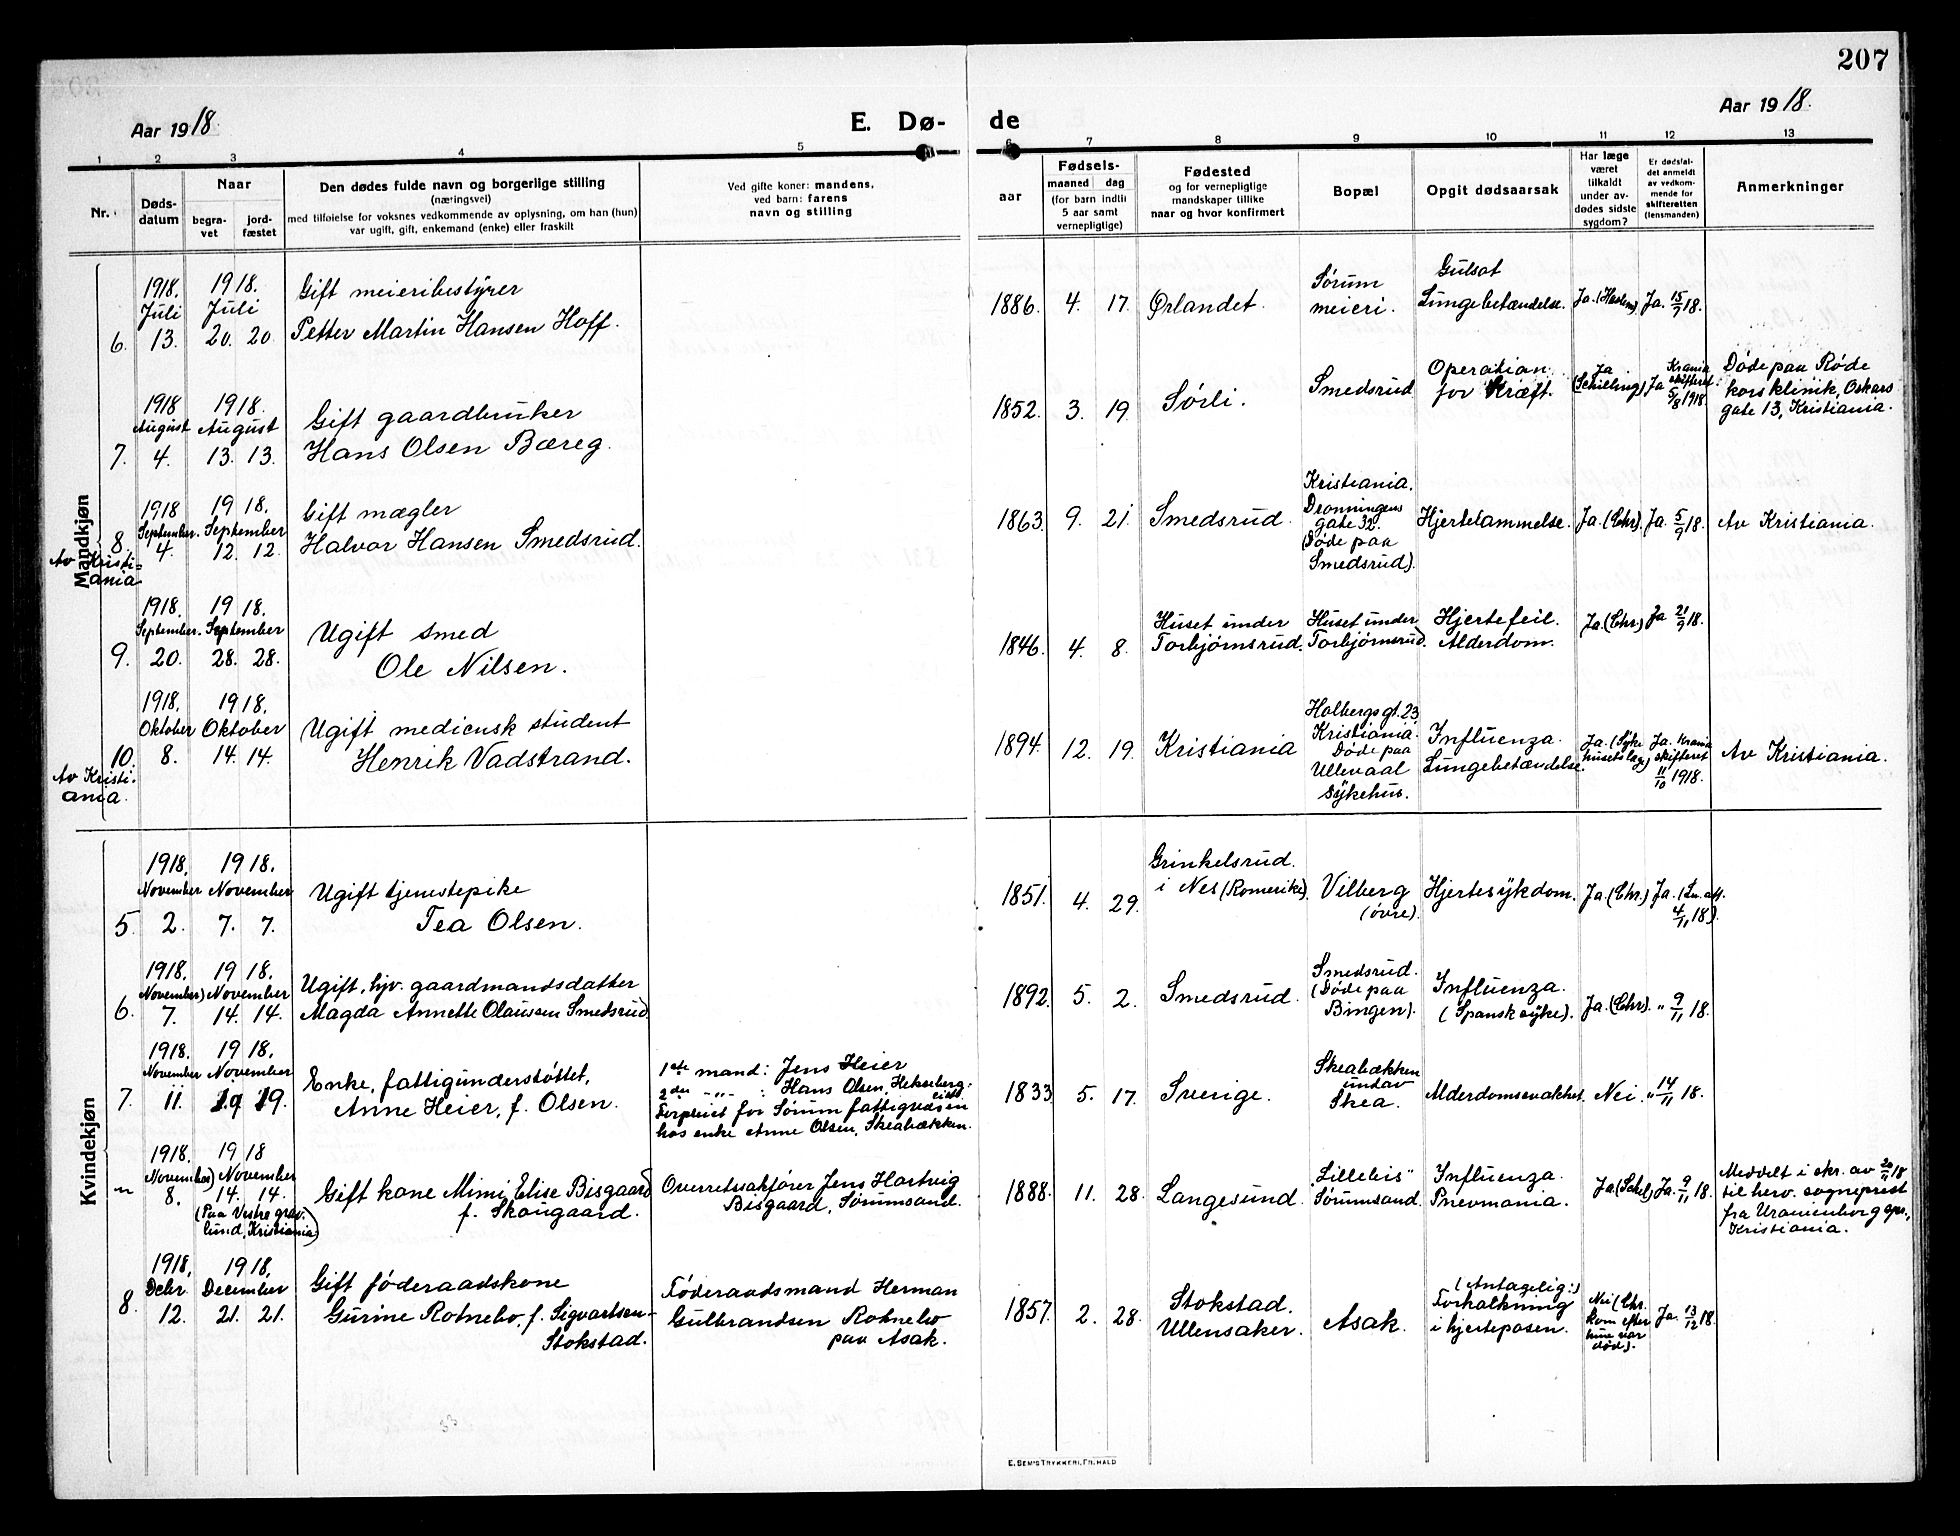 207
Aar 1918.
E. Dø-
de
Aar 1918.
1 2 3 4 5 6 7 8 9 10 11 12 13
Nr.
Døds-
datum
Naar
begra-
vet
jord-
fæstet
Den dødes fulde navn og borgerlige stilling
(næringsvei)
med tilføielse for voksnes vedkommende av oplysning, om han (hun)
var ugift, gift, enkemand (enke) eller fraskilt
Ved gifte koner: mandens,
ved barn: farens
navn og stilling
Fødsels-
aar
maaned
dag
(for barn indtil
5 aar samt
vernepligtige)
Fødested
og for vernepligtige
mandskaper tillike
naar og hvor konfirmert
Bopæl
Opgit dødsaarsak
Har læge
været
tilkaldt
under av-
dødes sidste
sygdom?
Er dødsfal-
det anmeldt
av vedkom-
mende for
skifteretten
(lensmanden)
Anmerkninger
Mandkjøn
6.
1918.
Juli
13.
1918.
Juli
20. 20.
Gift meieribestyrer
Petter Martin Hansen Hoff.
1886. 4. 17.
Ørlandet.
Sørum
meieri.
Gulsot
Lungebetændelse.
Ja.
Ja. 15/7 18.
7.
1918
August
4.
1918.
August
13. 13.
Gift gaardbruker
Hans Olsen Bæreg.
1852. 3. 19.
Sørli.
Smedsrud
Operation
for Kræft.
Ja
(Schilling)
Ja
Krania
skifteret
5/8 1918.
Døde paa Røde
kors klinik, Oskars
gate 13, Kristiania.
8.
Av Kristi-
ania
1918
September.
4.
1918.
September
12. 12.
Gift mægler
Halvor Hansen Smedsrud.
1863. 9. 21.
Smedsrud.
Kristiania.
Dronningens
gate 32.
(Døde paa
Smedsrud).
Hjertelammelse.
Ja. (Chr).
Ja. 5/9 18.
Av Kristiania.
9.
1918.
September.
20.
1918.
September
28. 28.
Ugift smed
Ole Nilsen.
1846. 4. 8.
Huset under
Torbjørnsrud.
Huset under
Torbjørnsrud.
Hjertefeil.
Alderdom.
Ja. (Chr.)
Ja 21/9 18.
10.
Av Kristi-
ania.
1918.
Oktober
8.
1918.
Oktober
14. 14.
Ugift medicinsk student
Henrik Vadstrand.
1894. 12. 19.
Kristiania
Holbergs gt. 23
Kristiania.
Døde paa
Ullevaal
sykehus.
Influenza.
Lungebetændelse.
Ja. (Syke
husets læge)
Ja. Krania
skifteret
11/10 1918.
Av Kristiania.
Kvindekjøn
5.
1918.
November
2.
1918.
November
7. 7.
Ugift tjenestepike
Tea Olsen.
1851. 4. 29.
Grinkelsrud.
i Nes (Romerike).
Vilberg
(øvre).
Hjertesykdom.
Ja. (Chr.)
Ja. (Ln. att.
4/11 18).
6.
1918.
November)
7.
1918.
November
14. 14.
Ugift, hjv. gaardmandsdatter
Magda Annette Olaussen Smedsrud
1892. 5. 2.
Smedsrud.
Smedsrud.
(Døde paa
Bingen).
Influenza.
(Spansk syke).
Ja. (Chr).
" 9/11 18.
7.
1918.
November
11.
1918.
November
19 19.
Enke, fattigunderstøttet,
Anne Heier, f. Olsen.
1ste mand: Jens Heier
2den -"- : Hans Olsen, Hekseberg-
eied.
Forpleiet for Sørum fattigvæsen
hos enke Anne Olsen, Skeabækken.
1833 5. 17.
Sverige.
Skeabækken
undav
Skea.
Alderdomssvakhet.
Nei.
" 14/11 18.
"
1918.
November)
8.
1918
November
14. 14.
(Paa Vestre grav-
lund, Kristiania)
Gift kone Mimi Elise Bisgaard
f. Skougaard.
Overretssakfører Jens Hartvig
Bisgaard, Sørumsand.
1888. 11. 28.
Langesund.
"Lillebis"
Sørumsand.
Influenza.
Pnevmonia.
Ja. (Schil)
Ja. 9/11 18.
Meddelt i skr. av 20/11 18
til herv. sogneprest
fra Uranienborg spr.,
Kristiania.
8.
1918.
Debr
12.
1918.
December
21. 21.
Gift føderaadskone
Gurine Rotnebo, f. Sigvartsen-
Stokstad.
Føderaadsmand Herman
Gulbrandsen Rotnebo
paa Asak.
1857. 2. 28.
Stokstad.
Ullensaker.
Asak.
(Antagelig:)
Forkalkning
i hjerteposen.
Nei (Chr.
kom efter
hun var
død).
Ja. 13/12 18.
E. SEM'S TRYKKERI, FR. HALD